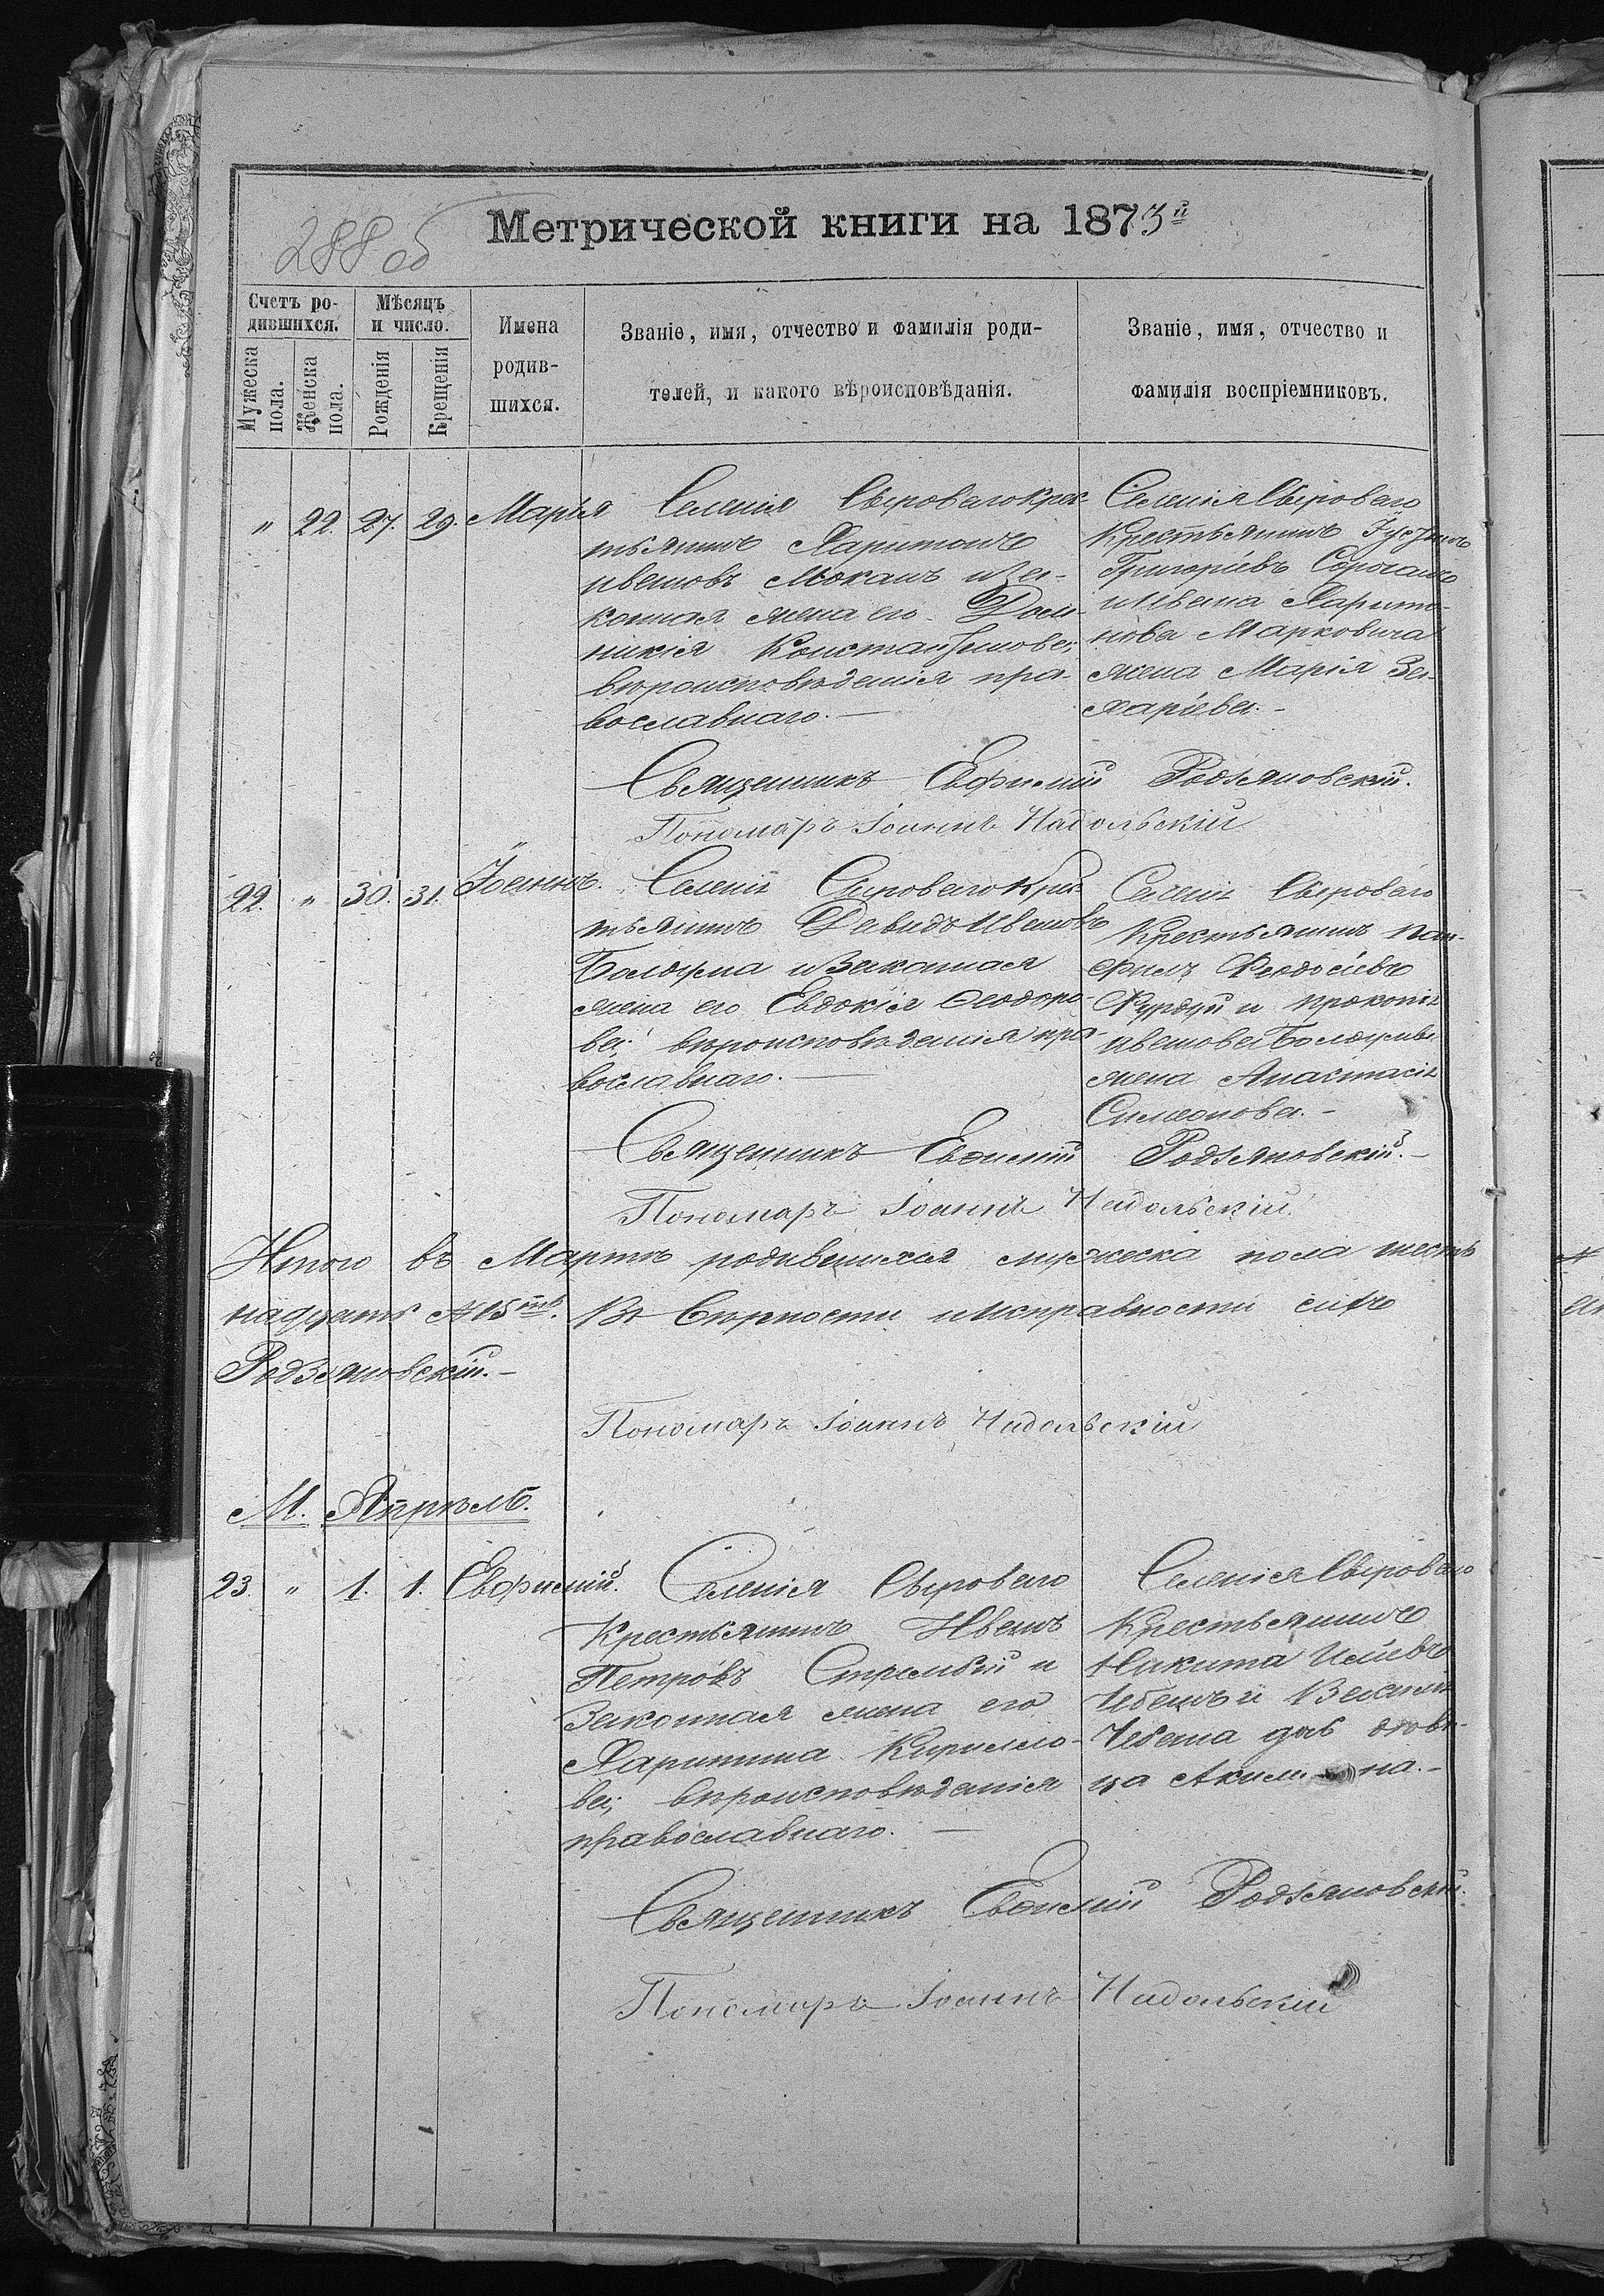 288 об
Метрической книги на 1873й
Счетъ ро-
дившихся.
Мужеска
пола.
Женска
пола.
Мѣсяцъ
и число.
Рожденія
Крещенія
Имена
родив-
шихся.
Званіе, имя, отчество и фамилія роди-
телей, и какого вѣроисповѣданія.
Званіе, имя, отчество и
фамилія воспріемниковъ.
" 22. 27. 29. Марія
Селенія Сыроваго Крес-
тьянинъ Харитонъ
Ивановъ Моканъ и За-
конная жена его Дом-
никія Константинова,
вѣроисповѣданія пра-
вославнаго.—
Селенія Сыроваго
Крестьянинъ Іустинъ
Григоріевъ Сорочанъ
и Ивана Харито-
нова Марковича
жена Марія За-
харіева.-
Священникъ Евфимій Родзяновскій.
Пономарь Іоаннъ Надольскій
22. " 30. 31. Іоаннъ.
Селенія Сыроваго Крес-
тьянинъ Давидъ Ивановъ
Болдума и Законная
жена его Евдокія Ѳеодоро-
ва; вѣроисповѣданія пра-
вославнаго.—
Селенія Сыроваго
Крестьянинъ Пан-
филъ Феодосіевъ
Фурдуй и Прокопія
Иванова Болдумы
жена Анастасія
Симеонова.-
Священникъ Евѳимій Родзяновскій.-
Пономарь Іоаннъ Надольскій.
Итого въ Мартѣ родившихся мужеска пола шесть
надцать
Въ Вѣрности и Исправности
Родзяновскій.-
Пономарь Іоаннъ Надольскій
М. Апрѣль.
23. " 1. 1. Евфимій.
Селенія Сыроваго
Крестьянинъ Иванъ
Петровъ Стрымбій и
Законная жена его
Харитина Кирилло-
ва; вѣроисповѣданія
православнаго.—
Селенія Сыроваго
Крестьянинъ
Никита
Чебанъ и
Чебана
ца
Священникъ Евѳимій Родзяновскій.
Пономарь Іоаннъ Надольскій